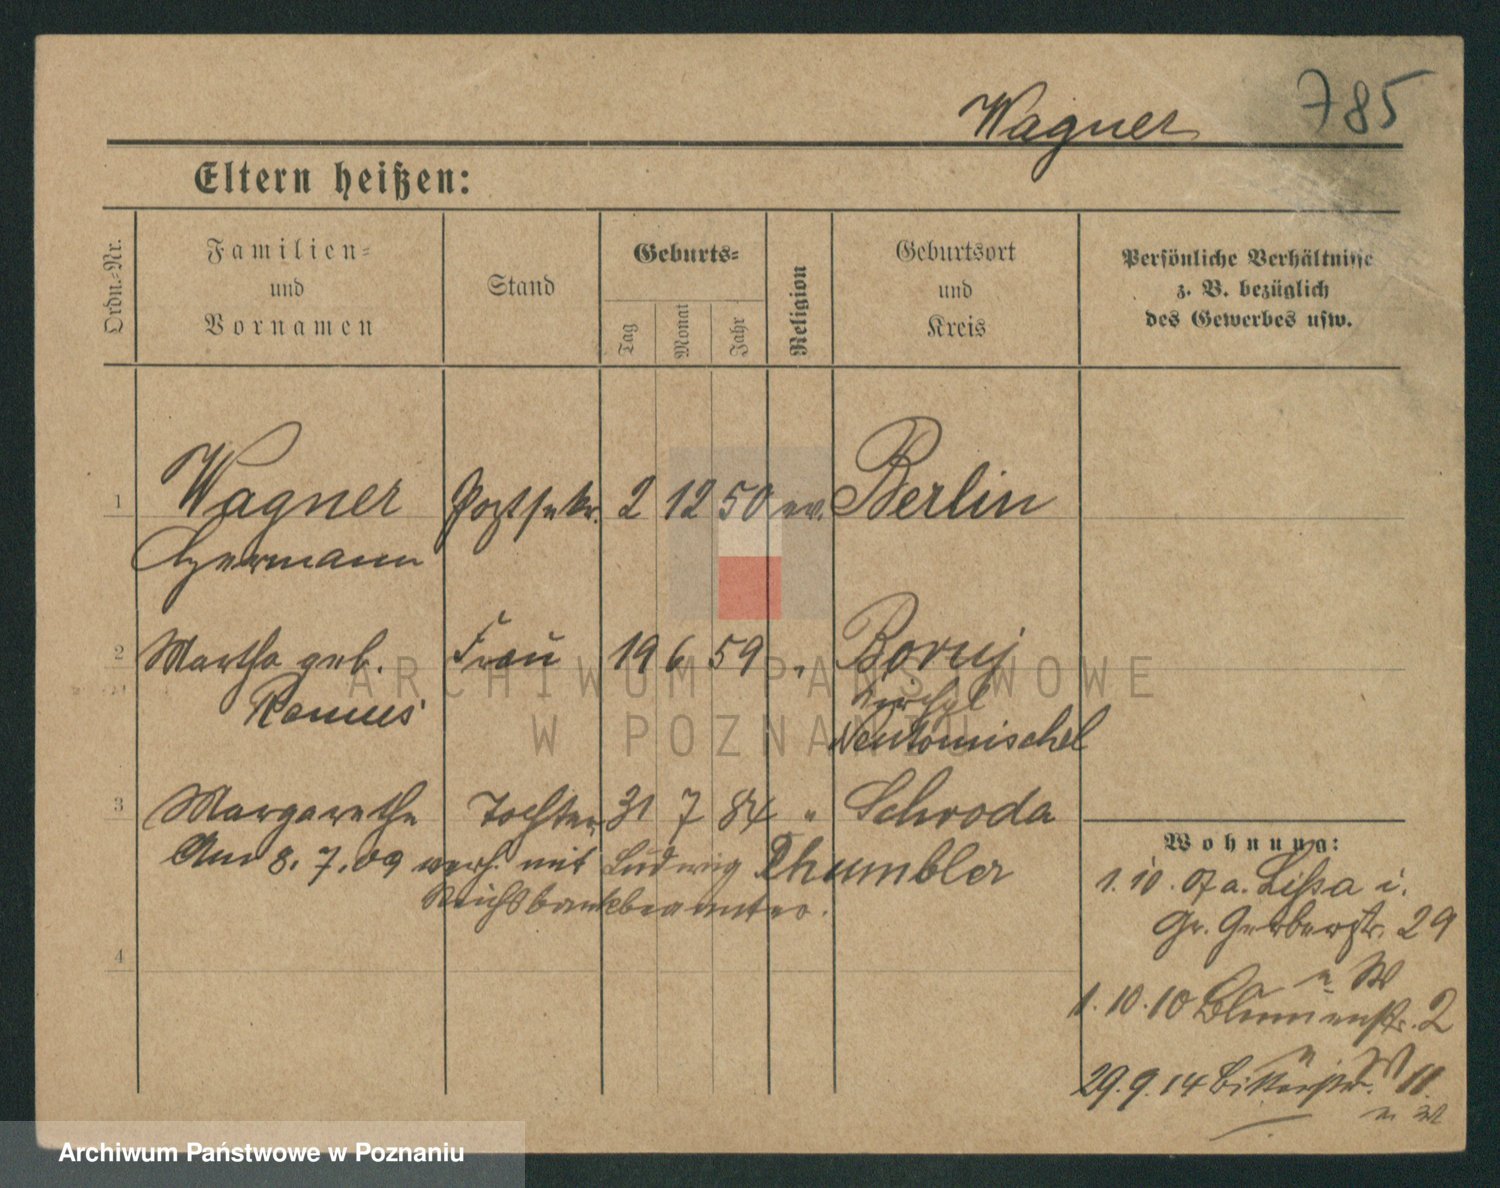 Wagner 785
Eltern heißen:
Ordn.-Nr.
Familien-
und
Vornamen
Stand
Geburts-
Tag
Monat
Jahr
Religion
Geburtsort
und
Kreis
Persönliche Verhältnisse
z. B. bezüglich
des Gewerbes usw.
1 Wagner Postsekr. 2 12 50 ev. Berlin
Hermann
2 Martha geb. Frau 19 6 59 " Boruj
Neutomischel
3 Margarethe Tochter 31 7 84 " Schroda
Am 8.7.09 verh. mit Ludwig Thumbler
Reichsbankbeamter.
4
Wohnung:
1.10.07 a. Lissa i.
Gr. Gerberstr. 29
n W
1.10.10 Blumenstr. 2
n W
29.9.14 Ritterstr. 11
n W
ARCHIWUM PAŃSTWOWE
W POZNANIU
Archiwum Państwowe w Poznaniu